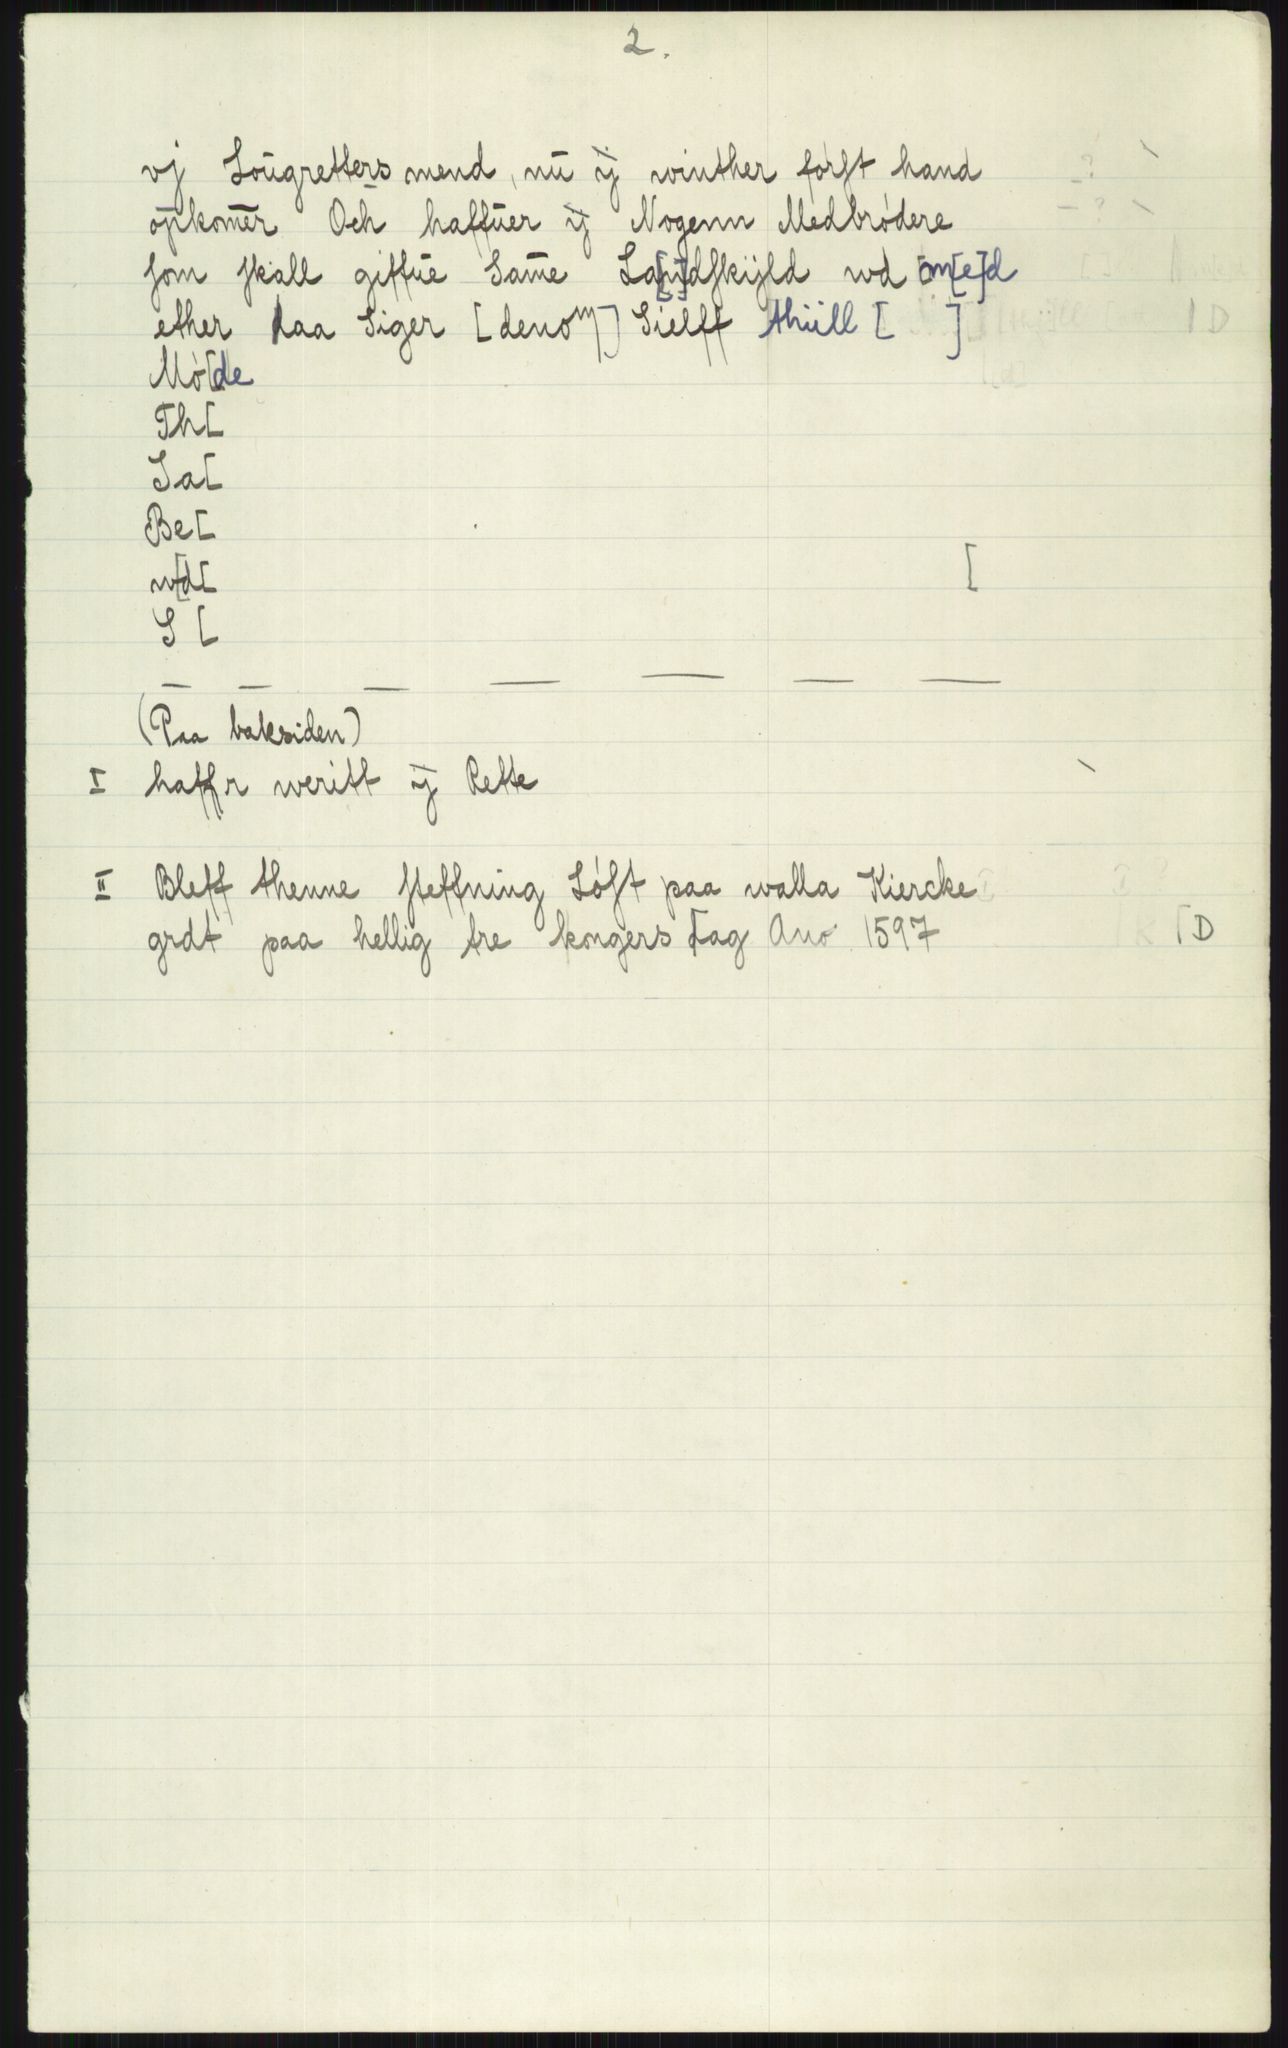 2.
vj Lougretters mend, nū ÿ wintherførst hand
opkomēr Och haffūer ÿ Nogenn Medbrødere
som skall giffūe Samē La[n]dskÿld wd m[e]d
ether daa Siger [denom] Sielff thüll [ ]
Mø[de
Th[
Sa[
Be[
w[d[
S [ [
— — — — — — —
(Paa baksiden)
I haffr weritt ÿ Rette
II Bleff thenne steffning Løst paa walla Kiercke
grdt paa hellig tre kongers Dag Ano 1597 [D